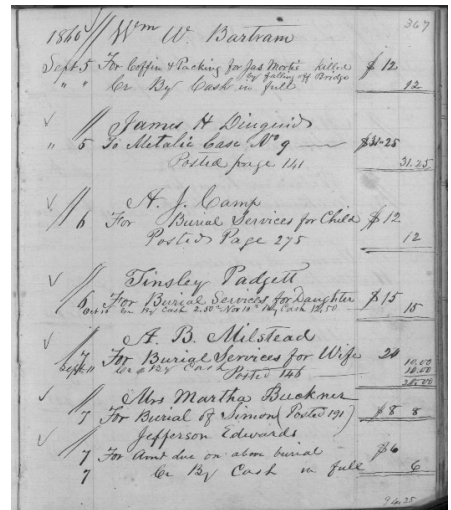 367
1866 // Wm W. Bartram
Sept 5 For Coffin & Packing for Jas killed $12
by falling off Bridge
" " Cr By Cash in full 12
✓ // James H Diuguid
" 5 To Metalic Case No 9 — $31.25
Posted page 141 31.25
✓ // A. J. Camp
6 For Burial Services for Child $12
Posted Page 275 12
✓ // Tinsley Padgett
6 For Burial Services for Daughter $15
Cr By Cash 2.50 Nov 10th By Cash 12.50 15
✓ // A. B. Milstead
7 For Burial Services for Wife 20 10.00
Sept 11 Cr By Cash Posted 146 10.00
20.00
✓ // Mrs Martha Buckner
7 For Burial of Simon (Posted 191) $8 8
✓ // Jefferson Edwards
7 For Amt due on above burial $6
7 Cr By Cash in full 6
94.25